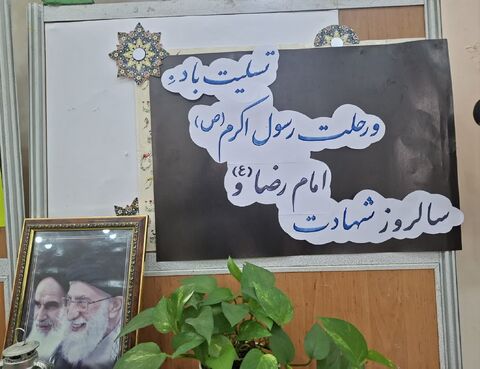 تسلیت باد.
و رحلت رسول اکرم (ص)
امام رضا (ع) و
سالروز شهادت